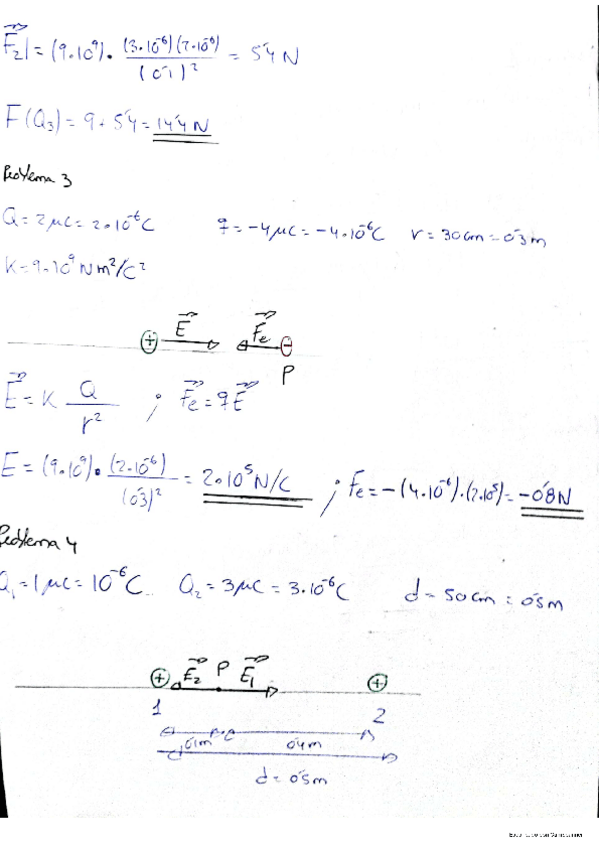 |F₂| = (9·10⁹)· (3·10⁻⁶)(2·10⁻⁶) / (0'1)² = 5'4 N
F(Q₃) = 9 + 5'4 = 14'4 N
Problema 3
Q = 2 μC = 2·10⁻⁶ C q = -4 μC = -4·10⁻⁶ C r = 30 cm = 0'3 m
K = 9·10⁹ N m²/C²
+ E Fe -
P
E = K Q / r² ; Fe = q E
E = (9·10⁹)· (2·10⁻⁶) / (0'3)² = 2·10⁵ N/C ; Fe = -(4·10⁻⁶)·(2·10⁵) = -0'8 N
Problema 4
Q₁ = 1 μC = 10⁻⁶ C Q₂ = 3 μC = 3·10⁻⁶ C d = 50 cm = 0'5 m
+ E₂ P E₁ +
1 2
0'1m 0'4m
d = 0'5m